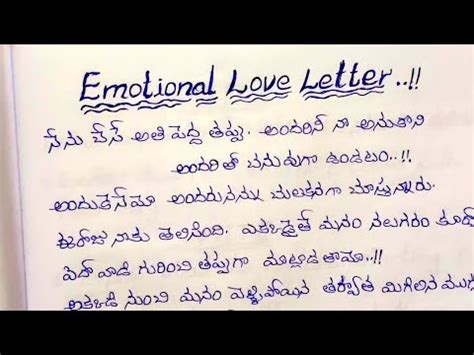 Emotional Love Letter..!!
నేను చేసే అతి పెద్ద తప్పు. అందరిని నా అనుకొని
అందరితో చనువుగా ఉండటం..!!
అందుకేనేమో అందరునన్ను చులకనగా చూస్తున్నారు.
ఈరోజు నాకు తెలిసింది. ఎక్కడైతే మనం నలుగురం కూర్
పేరా వాడి గురించి తప్పుగా మాట్లాడతామో..!!
అక్కడి నుంచి మనం వెళ్ళిపోయిన తర్వాత మిగిలిన ముగ